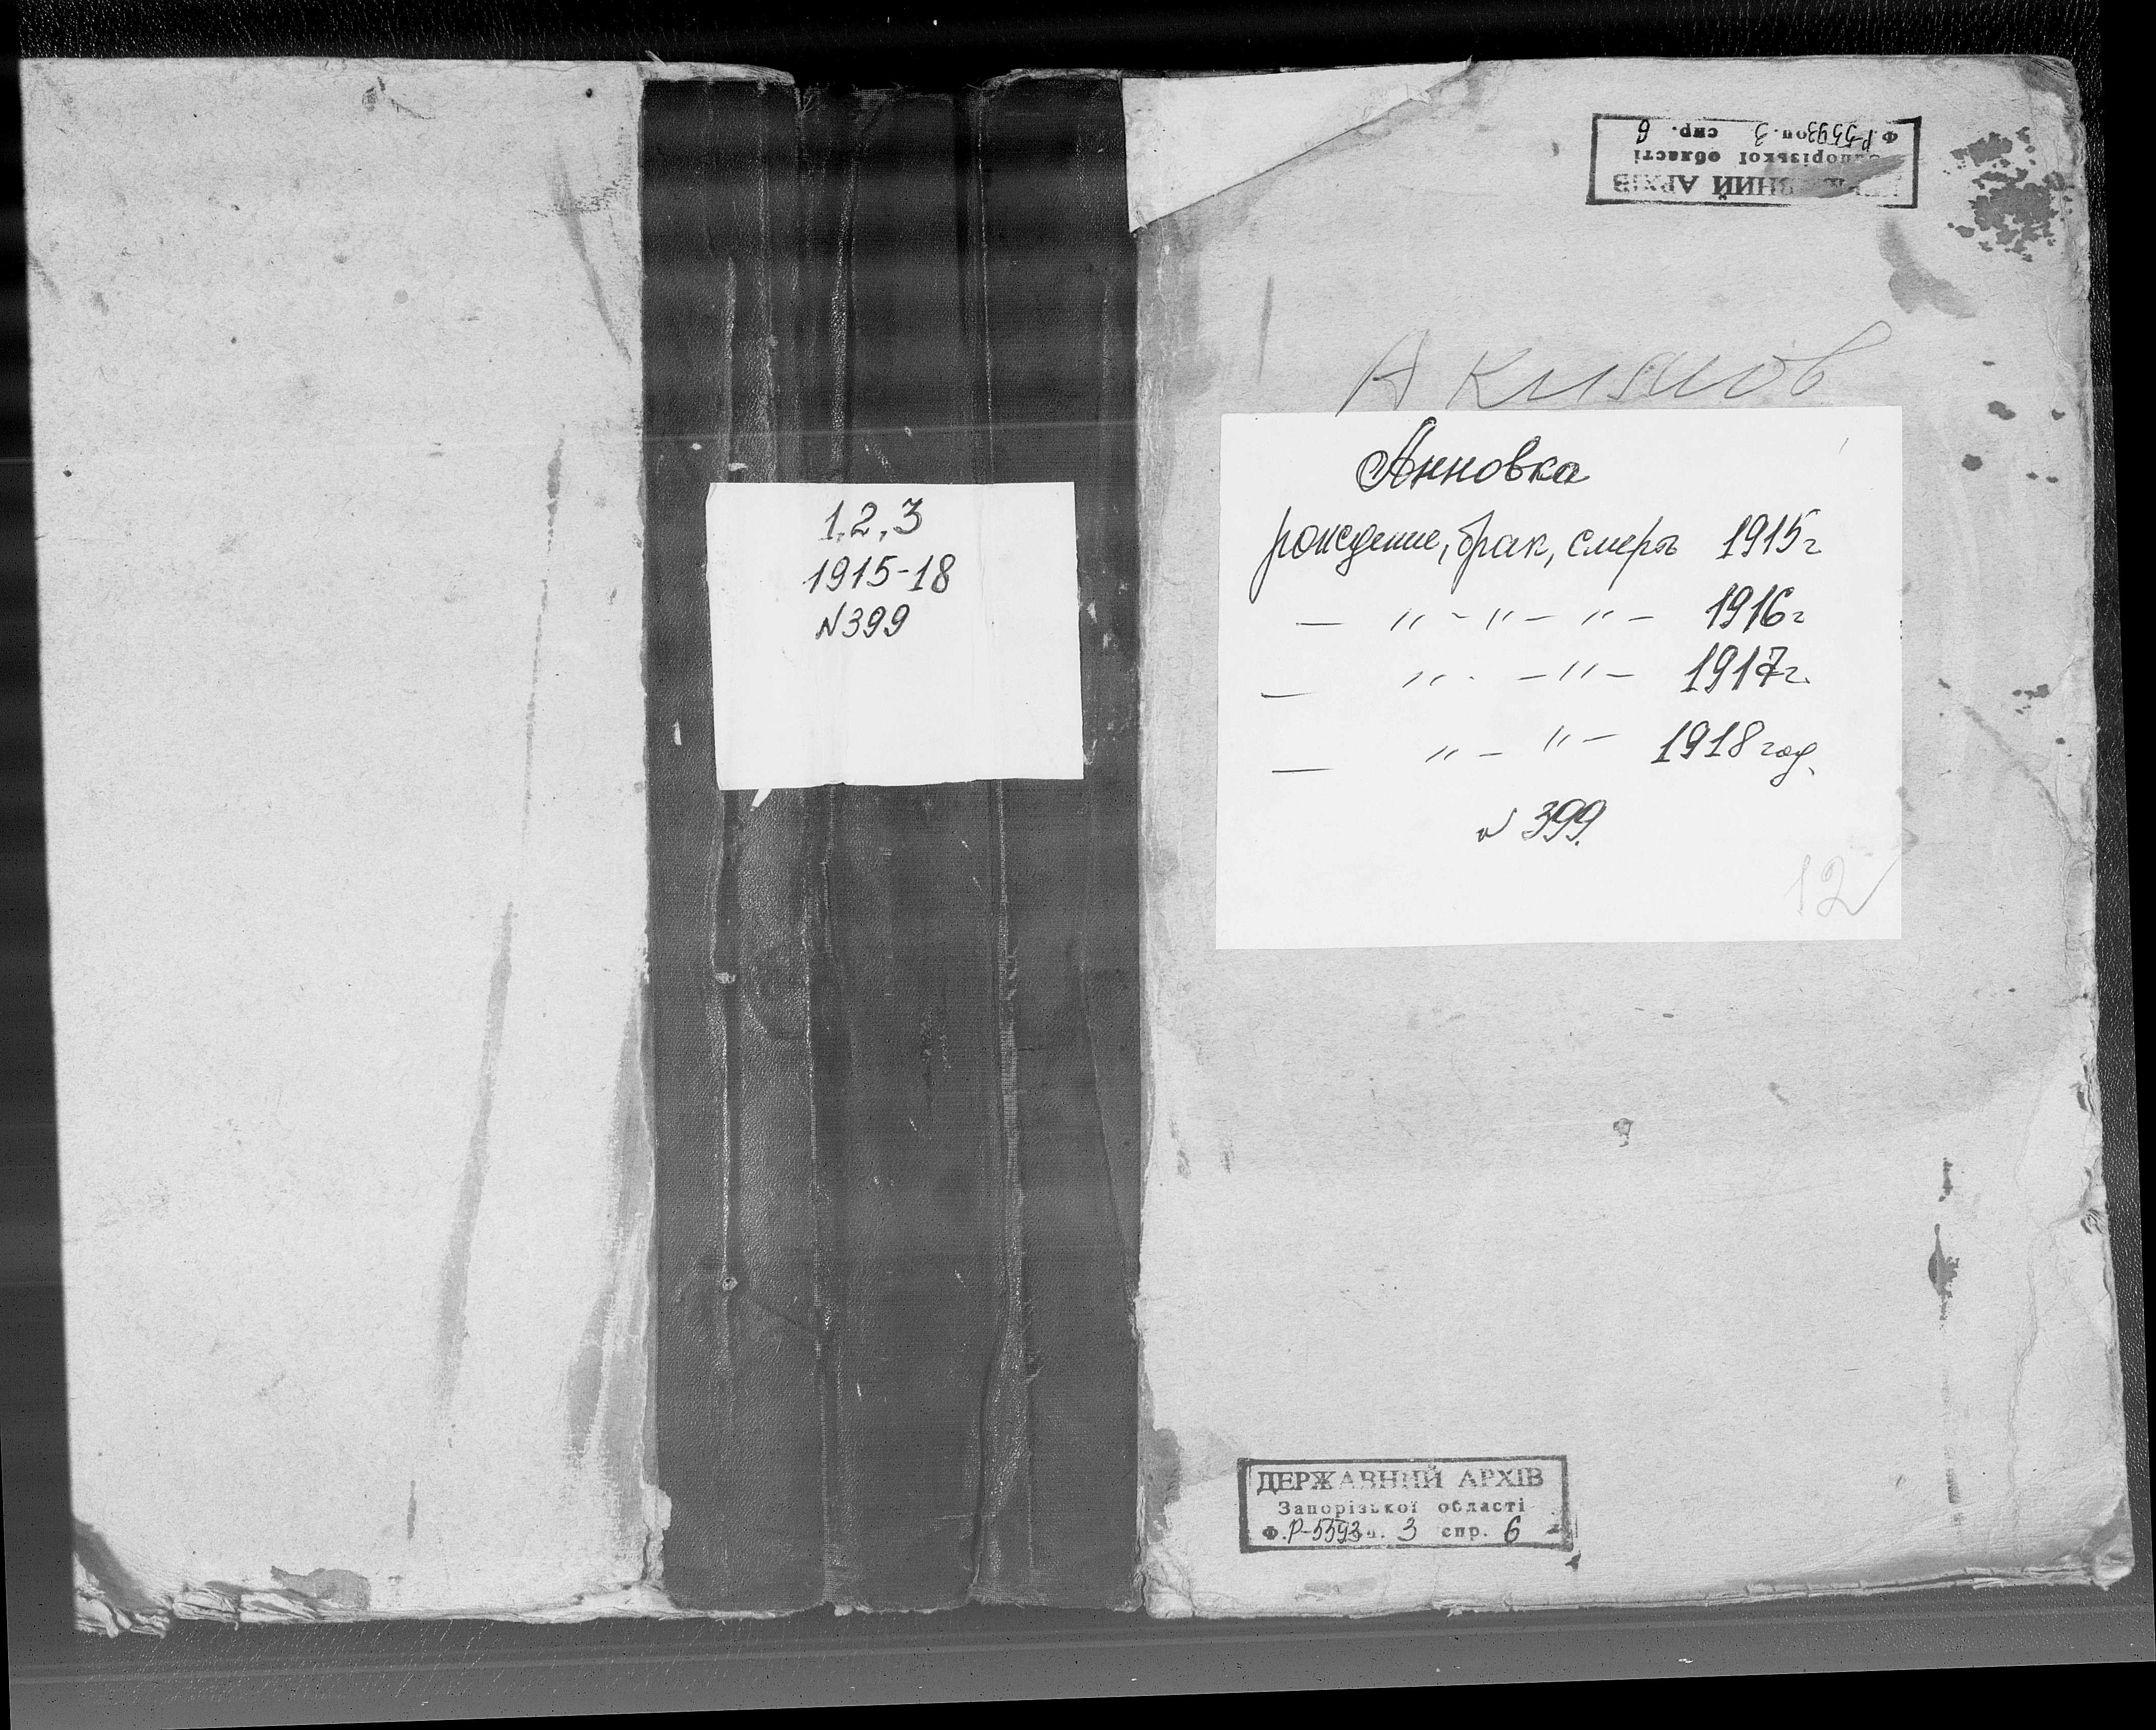 1,2,3
1915-18
N399
ДЕРЖАВНИЙ АРХІВ
Запорізької області
Ф.Р-5593 оп. 3 спр. 6
Акимов
Анновка
рождение, брак, смерть 1915г
— " - " - " - 1916г
— " - - " - 1917г.
— " - " - 1918 год.
N 399.
12
ДЕРЖАВНИЙ АРХІВ
Запорізької області
Ф.Р-5593 оп. 3 спр. 6